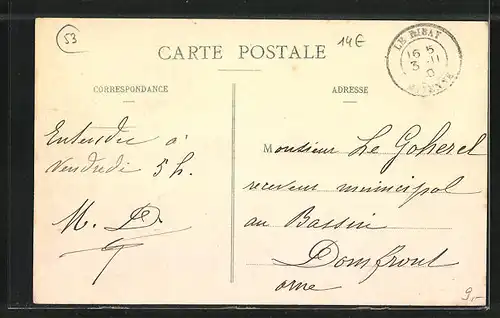 53
CARTE POSTALE
14€
LE RIBAY
16 5
3 - 11
0
MAYENNE
CORRESPONDANCE
ADRESSE
Entendu à
Vendredi 5 h.
M. D.
Monsieur Le Goherel
receveur municipal
au Bassin
Domfront
orne
9,-